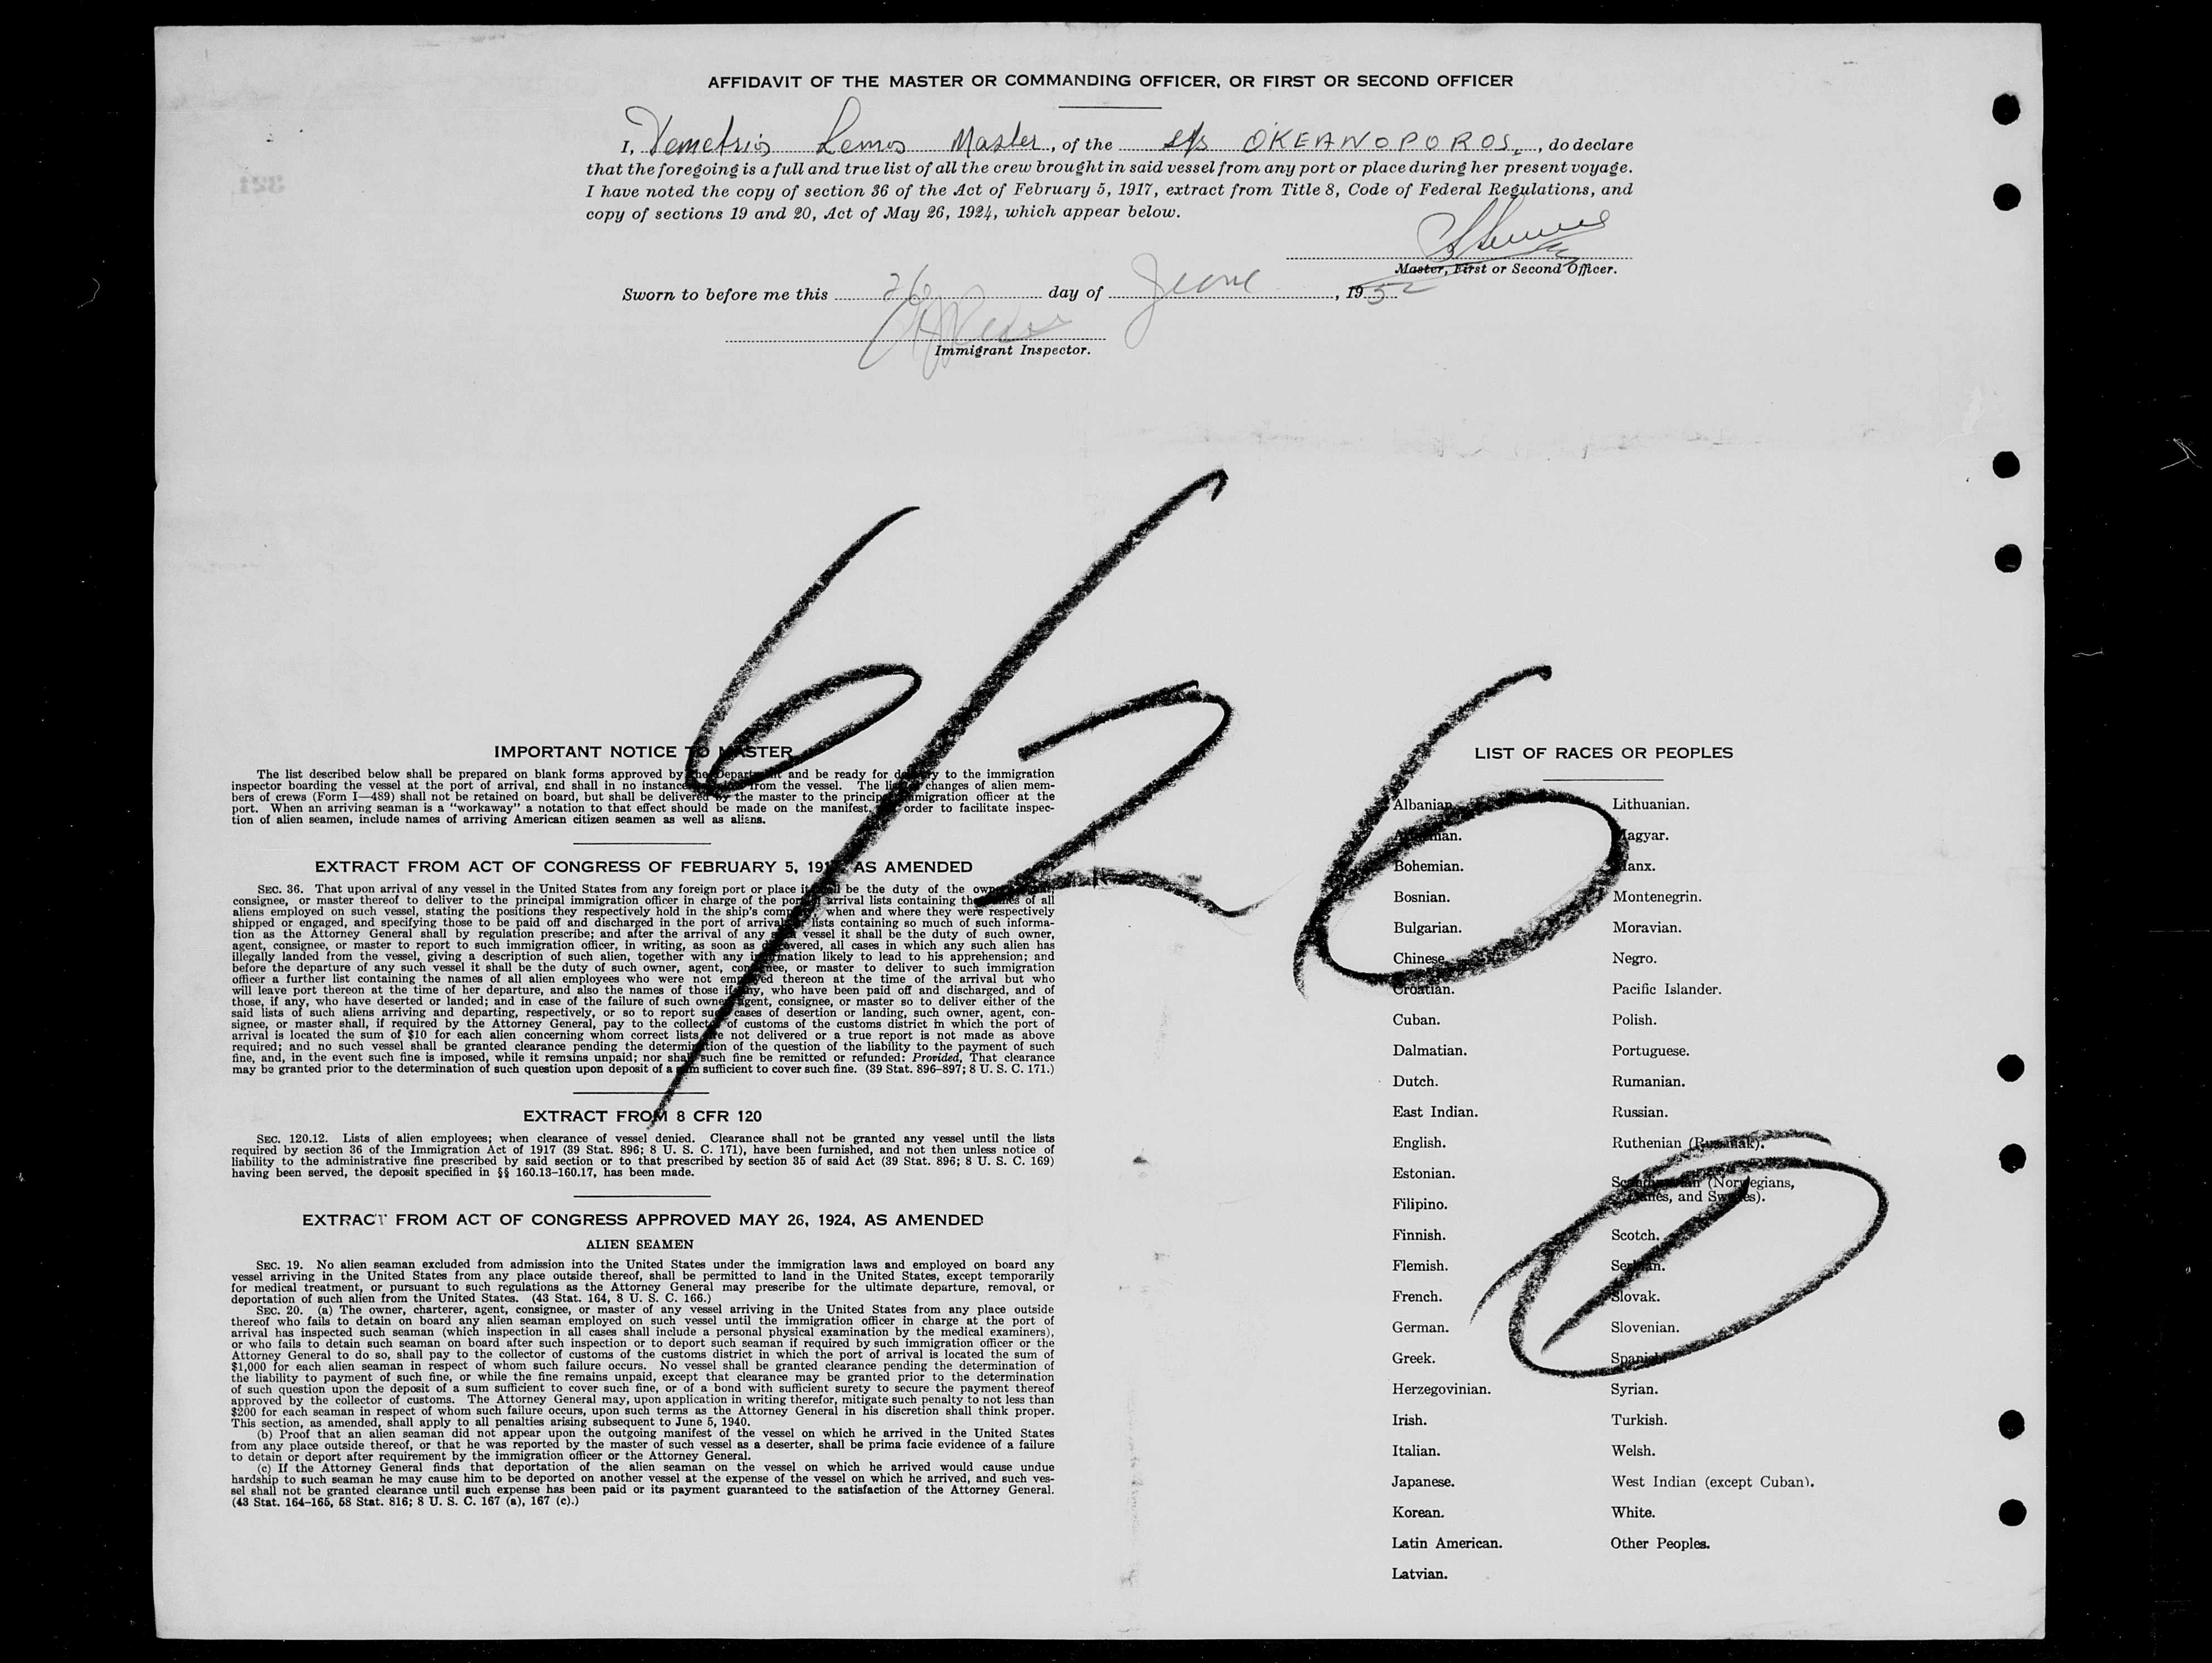 AFFIDAVIT OF THE MASTER OR COMMANDING OFFICER, OR FIRST OR SECOND OFFICER
I, Demetrios Lemos Master, of the s/s OKEANOPOROS, do declare
that the foregoing is a full and true list of all the crew brought in said vessel from any port or place during her present voyage.
I have noted the copy of section 36 of the Act of February 5, 1917, extract from Title 8, Code of Federal Regulations, and
copy of sections 19 and 20, Act of May 26, 1924, which appear below.
Master, First or Second Officer.
Sworn to before me this 26 day of June, 1952
Immigrant Inspector.
321
6/26
1
IMPORTANT NOTICE TO MASTER
The list described below shall be prepared on blank forms approved by the Department and be ready for delivery to the immigration
inspector boarding the vessel at the port of arrival, and shall in no instance from the vessel. The list changes of alien mem-
bers of crews (Form I—489) shall not be retained on board, but shall be delivered by the master to the principal immigration officer at the
port. When an arriving seaman is a "workaway" a notation to that effect should be made on the manifest. order to facilitate inspec-
tion of alien seamen, include names of arriving American citizen seamen as well as aliens.
EXTRACT FROM ACT OF CONGRESS OF FEBRUARY 5, 1917, AS AMENDED
SEC. 36. That upon arrival of any vessel in the United States from any foreign port or place it shall be the duty of the owner,
consignee, or master thereof to deliver to the principal immigration officer in charge of the port arrival lists containing the names of all
aliens employed on such vessel, stating the positions they respectively hold in the ship's company, when and where they were respectively
shipped or engaged, and specifying those to be paid off and discharged in the port of arrival lists containing so much of such informa-
tion as the Attorney General shall by regulation prescribe; and after the arrival of any such vessel it shall be the duty of such owner,
agent, consignee, or master to report to such immigration officer, in writing, as soon as discovered, all cases in which any such alien has
illegally landed from the vessel, giving a description of such alien, together with any information likely to lead to his apprehension; and
before the departure of any such vessel it shall be the duty of such owner, agent, consignee, or master to deliver to such immigration
officer a further list containing the names of all alien employees who were not employed thereon at the time of the arrival but who
will leave port thereon at the time of her departure, and also the names of those if any, who have been paid off and discharged, and of
those, if any, who have deserted or landed; and in case of the failure of such owner, agent, consignee, or master so to deliver either of the
said lists of such aliens arriving and departing, respectively, or so to report such cases of desertion or landing, such owner, agent, con-
signee, or master shall, if required by the Attorney General, pay to the collector of customs of the customs district in which the port of
arrival is located the sum of $10 for each alien concerning whom correct lists are not delivered or a true report is not made as above
required; and no such vessel shall be granted clearance pending the determination of the question of the liability to the payment of such
fine, and, in the event such fine is imposed, while it remains unpaid; nor shall such fine be remitted or refunded: Provided, That clearance
may be granted prior to the determination of such question upon deposit of a sum sufficient to cover such fine. (39 Stat. 896–897; 8 U. S. C. 171.)
EXTRACT FROM 8 CFR 120
SEC. 120.12. Lists of alien employees; when clearance of vessel denied. Clearance shall not be granted any vessel until the lists
required by section 36 of the Immigration Act of 1917 (39 Stat. 896; 8 U. S. C. 171), have been furnished, and not then unless notice of
liability to the administrative fine prescribed by said section or to that prescribed by section 35 of said Act (39 Stat. 896; 8 U. S. C. 169)
having been served, the deposit specified in §§ 160.13–160.17, has been made.
EXTRACT FROM ACT OF CONGRESS APPROVED MAY 26, 1924, AS AMENDED
ALIEN SEAMEN
SEC. 19. No alien seaman excluded from admission into the United States under the immigration laws and employed on board any
vessel arriving in the United States from any place outside thereof, shall be permitted to land in the United States, except temporarily
for medical treatment, or pursuant to such regulations as the Attorney General may prescribe for the ultimate departure, removal, or
deportation of such alien from the United States. (43 Stat. 164, 8 U. S. C. 166.)
SEC. 20. (a) The owner, charterer, agent, consignee, or master of any vessel arriving in the United States from any place outside
thereof who fails to detain on board any alien seaman employed on such vessel until the immigration officer in charge at the port of
arrival has inspected such seaman (which inspection in all cases shall include a personal physical examination by the medical examiners),
or who fails to detain such seaman on board after such inspection or to deport such seaman if required by such immigration officer or the
Attorney General to do so, shall pay to the collector of customs of the customs district in which the port of arrival is located the sum of
$1,000 for each alien seaman in respect of whom such failure occurs. No vessel shall be granted clearance pending the determination of
the liability to payment of such fine, or while the fine remains unpaid, except that clearance may be granted prior to the determination
of such question upon the deposit of a sum sufficient to cover such fine, or of a bond with sufficient surety to secure the payment thereof
approved by the collector of customs. The Attorney General may, upon application in writing therefor, mitigate such penalty to not less than
$200 for each seaman in respect of whom such failure occurs, upon such terms as the Attorney General in his discretion shall think proper.
This section, as amended, shall apply to all penalties arising subsequent to June 5, 1940.
(b) Proof that an alien seaman did not appear upon the outgoing manifest of the vessel on which he arrived in the United States
from any place outside thereof, or that he was reported by the master of such vessel as a deserter, shall be prima facie evidence of a failure
to detain or deport after requirement by the immigration officer or the Attorney General.
(c) If the Attorney General finds that deportation of the alien seaman on the vessel on which he arrived would cause undue
hardship to such seaman he may cause him to be deported on another vessel at the expense of the vessel on which he arrived, and such ves-
sel shall not be granted clearance until such expense has been paid or its payment guaranteed to the satisfaction of the Attorney General.
(43 Stat. 164–165, 58 Stat. 816; 8 U. S. C. 167 (a), 167 (c).)
LIST OF RACES OR PEOPLES
Albanian.
Armenian.
Bohemian.
Bosnian.
Bulgarian.
Chinese.
Croatian.
Cuban.
Dalmatian.
Dutch.
East Indian.
English.
Estonian.
Filipino.
Finnish.
Flemish.
French.
German.
Greek.
Herzegovinian.
Irish.
Italian.
Japanese.
Korean.
Latin American.
Latvian.
Lithuanian.
Magyar.
Manx.
Montenegrin.
Moravian.
Negro.
Pacific Islander.
Polish.
Portuguese.
Rumanian.
Russian.
Ruthenian (Russniak).
Scandinavian (Norwegians,
Danes, and Swedes).
Scotch.
Serbian.
Slovak.
Slovenian.
Spanish.
Syrian.
Turkish.
Welsh.
West Indian (except Cuban).
White.
Other Peoples.